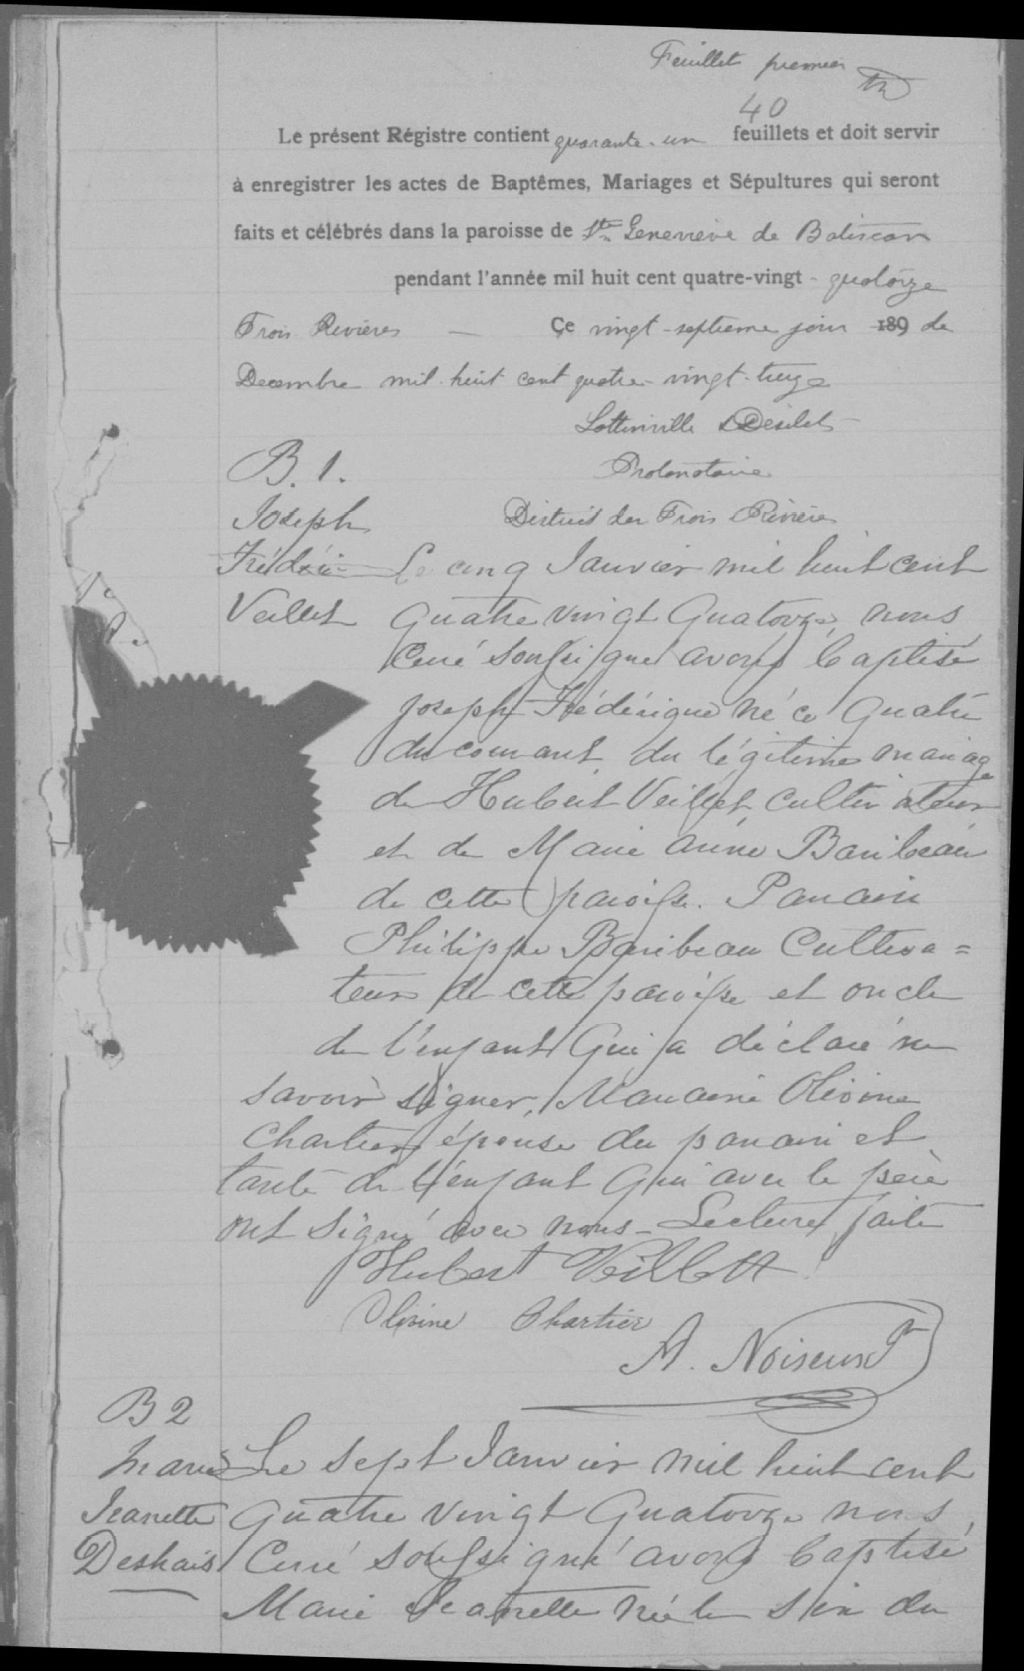 Feuillet premier
40
Le présent Régistre contient quarante-un feuillets et doit servir
à enregistrer les actes de Baptêmes, Mariages et Sépultures qui seront
faits et célébrés dans la paroisse de Ste Genevieve de Batiscan
pendant l'année mil huit cent quatre-vingt-quatorze
Trois Rivières — Ce vingt-septieme jour 189 de
Decembre mil huit cent quatre-vingt-treize
Lottinville & Desilets
Protonotaire
District des Trois Rivieres
B. 1.
Joseph
Frédéric
Veillet
Le cinq Janvier mil huit cent
quatre vingt quatorze, nous
Curé soussigné avons baptisé
Joseph Frédérique né ce quatre
du courant du légitime mariage
de Hubert Veillet, cultivateur
et de Marie Anne Baribeau
de cette paroisse. Parrain
Philippe Baribeau Cultiva=
teur de cette paroisse et oncle
de l'enfant qui a déclaré ne
savoir signer, Marraine Olivine
Chartier épouse du parrain et
tante de l'enfant qui avec le père
ont signé avec nous - Lecture faite
Hubert Veillett
Olivine Chartier
A. Noiseux Ptr
B 2
Marie
Jeanette
Deshais
Le sept Janvier mil huit cent
quatre vingt quatorze nous,
Curé soussigné avons baptisé
Marie Jeanette née le six du